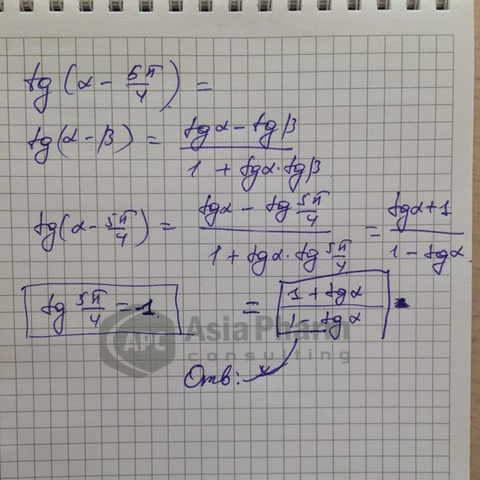 tg(α - 5π/4) =
tg(α - β) = (tgα - tgβ)/(1 + tgα·tgβ)
tg(α - 5π/4) = (tgα - tg 5π/4)/(1 + tgα·tg 5π/4) = (tgα + 1)/(1 - tgα)
tg 5π/4 = -1 = (1 + tgα)/(1 - tgα)
APC Asia Pharm
consulting
Отв: